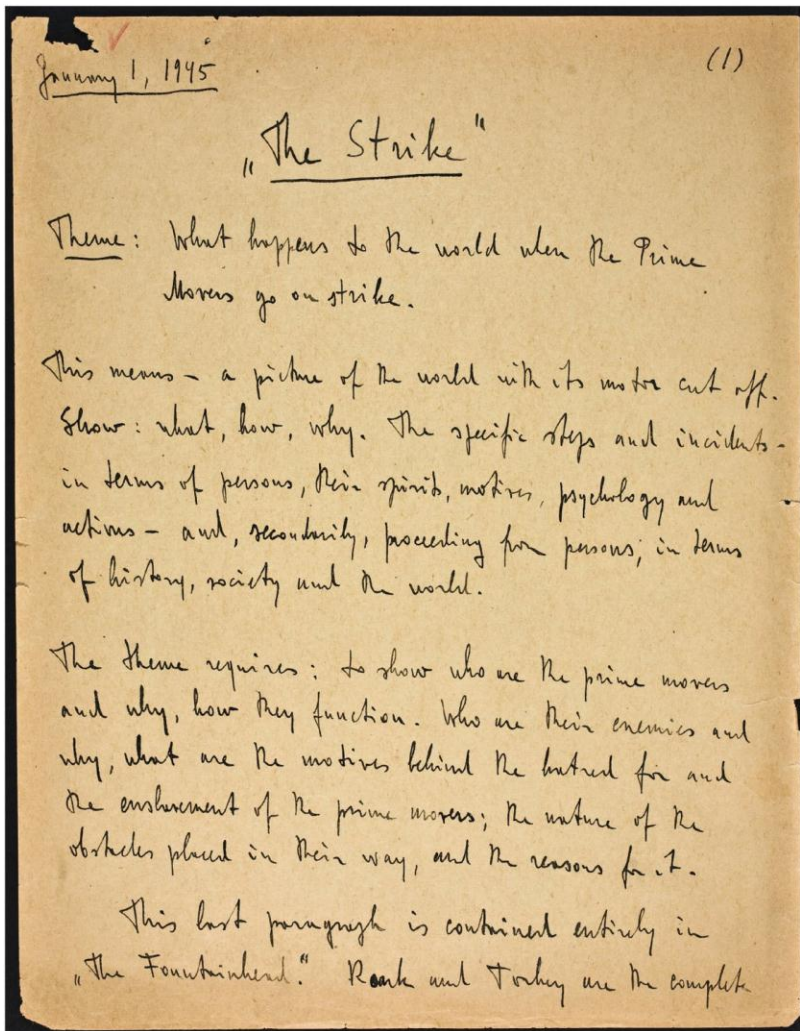 January 1, 1945
(1)
„The Strike"
Theme: What happens to the world when the Prime
Movers go on strike.
This means – a picture of the world with its motor cut off.
Show: what, how, why. The specific steps and incidents –
in terms of persons, their spirits, motives, psychology and
actions – and, secondarily, proceeding from persons, in terms
of history, society and the world.
The theme requires: to show who are the prime movers
and why, how they function. Who are their enemies and
why, what are the motives behind the hatred for and
the enslavement of the prime movers; the nature of the
obstacles placed in their way, and the reasons for it.
This last paragraph is contained entirely in
„The Fountainhead." Roark and Toohey are the complete